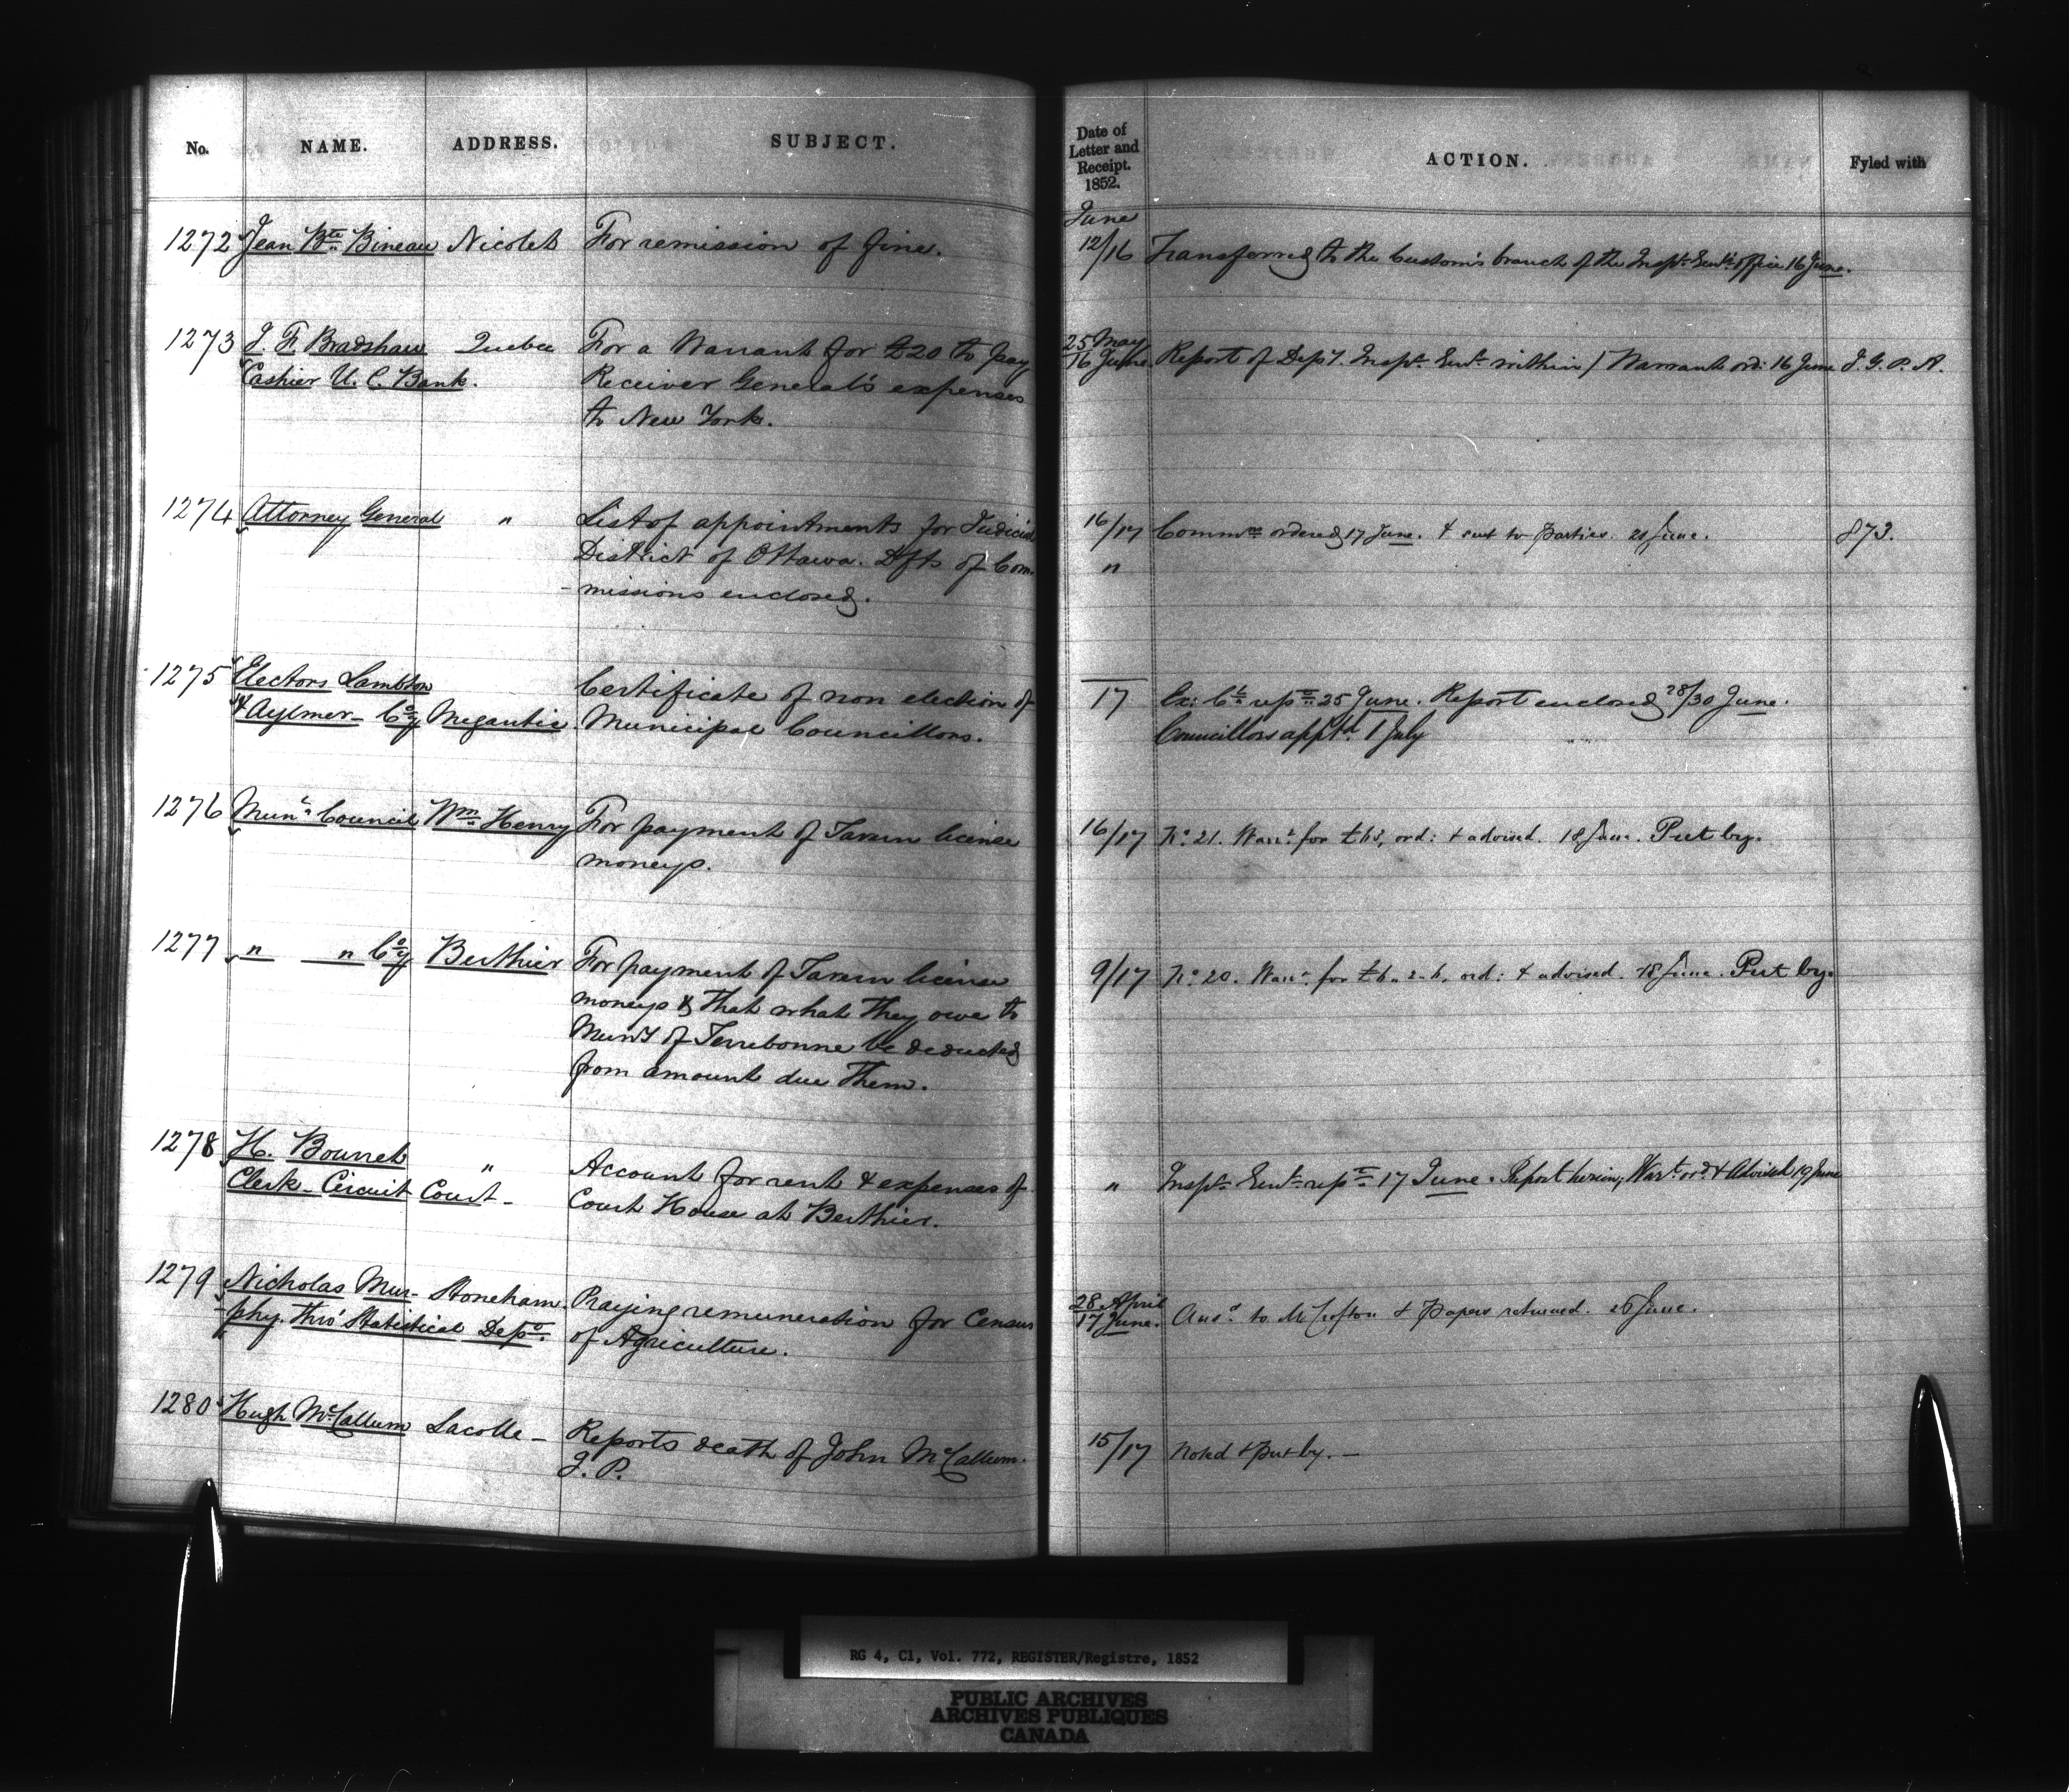 No. NAME. ADDRESS. SUBJECT.
1272 Jean Bte. Bineau Nicolet For remission of fine.
1273 J. F. Bradshaw Quebec For a Warrant for £20 to pay
Cashier U. C. Bank. Receiver General's expenses
to New York.
1274 Attorney General " List of appointments for Judicial
District of Ottawa. Dfts of Com-
-missions enclosed.
1275 Electors Lambton Certificate of non election of
& Aylmer - Coy Megantic Municipal Councillors.
1276 Munl. Council Wm. Henry For payment of Tavern license
moneys.
1277 " " Coy Berthier For payment of Tavern license
moneys & that what they owe to
Muny of Terrebonne be deducted
from amount due them.
1278 H. Bourret " Account for rent & expenses of
Clerk - Circuit Court - Court House at Berthier.
1279 Nicholas Mur- Stoneham. Praying remuneration for Census
phy. thro' Statistical Dept. of Agriculture.
1280 Hugh McCallum Lacolle - Reports death of John McCallum.
J. P.
Date of
Letter and
Receipt.
1852.
ACTION. Fyled with
June
12/16 Transferred to the Customs branch of the Inspr. Genl's office 16 June.
25 May
16 June. Report of Depy. Inspr. Genl. within / Warrant ord: 16 June J. G. P. A.
16/17 Commns ordered 17 June. & sent to Parties. 21 June. 873.
"
17 Ex: Cl. repd. 25 June. Report enclosed 28/30 June.
Councillors apptd 1 July
16/17 No. 21. Warrt. for ord: & advised. 18 June. Put by.
9/17 No. 20. Warrt. for £6.. 2-6, ord: & advised. 18 June. Put by.
" Inspr. Genl. 17 June. Report herein; Warrt. ord & advised 19 June
28 April
17 June. Ansd. to Mr Crofton & Papers returned. 26 June.
15/17 Noted & Put by. -
RG 4, C1, Vol. 772, REGISTER/Registre, 1852
PUBLIC ARCHIVES
ARCHIVES PUBLIQUES
CANADA